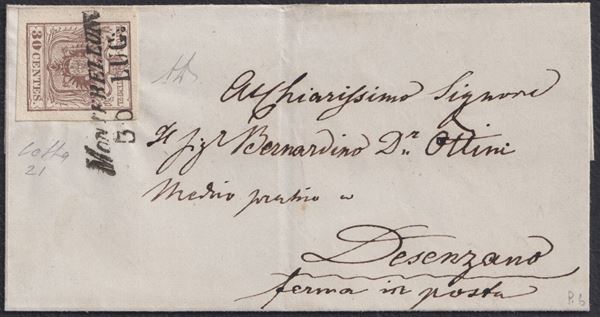 30 CENTES.
MONTEBELLUN
30 LUG:
Al Chiarissimo Signore
Il sigr Bernardino Dr. Ottini
Medico pratico a
Desenzano
ferma in posta
21
P. b